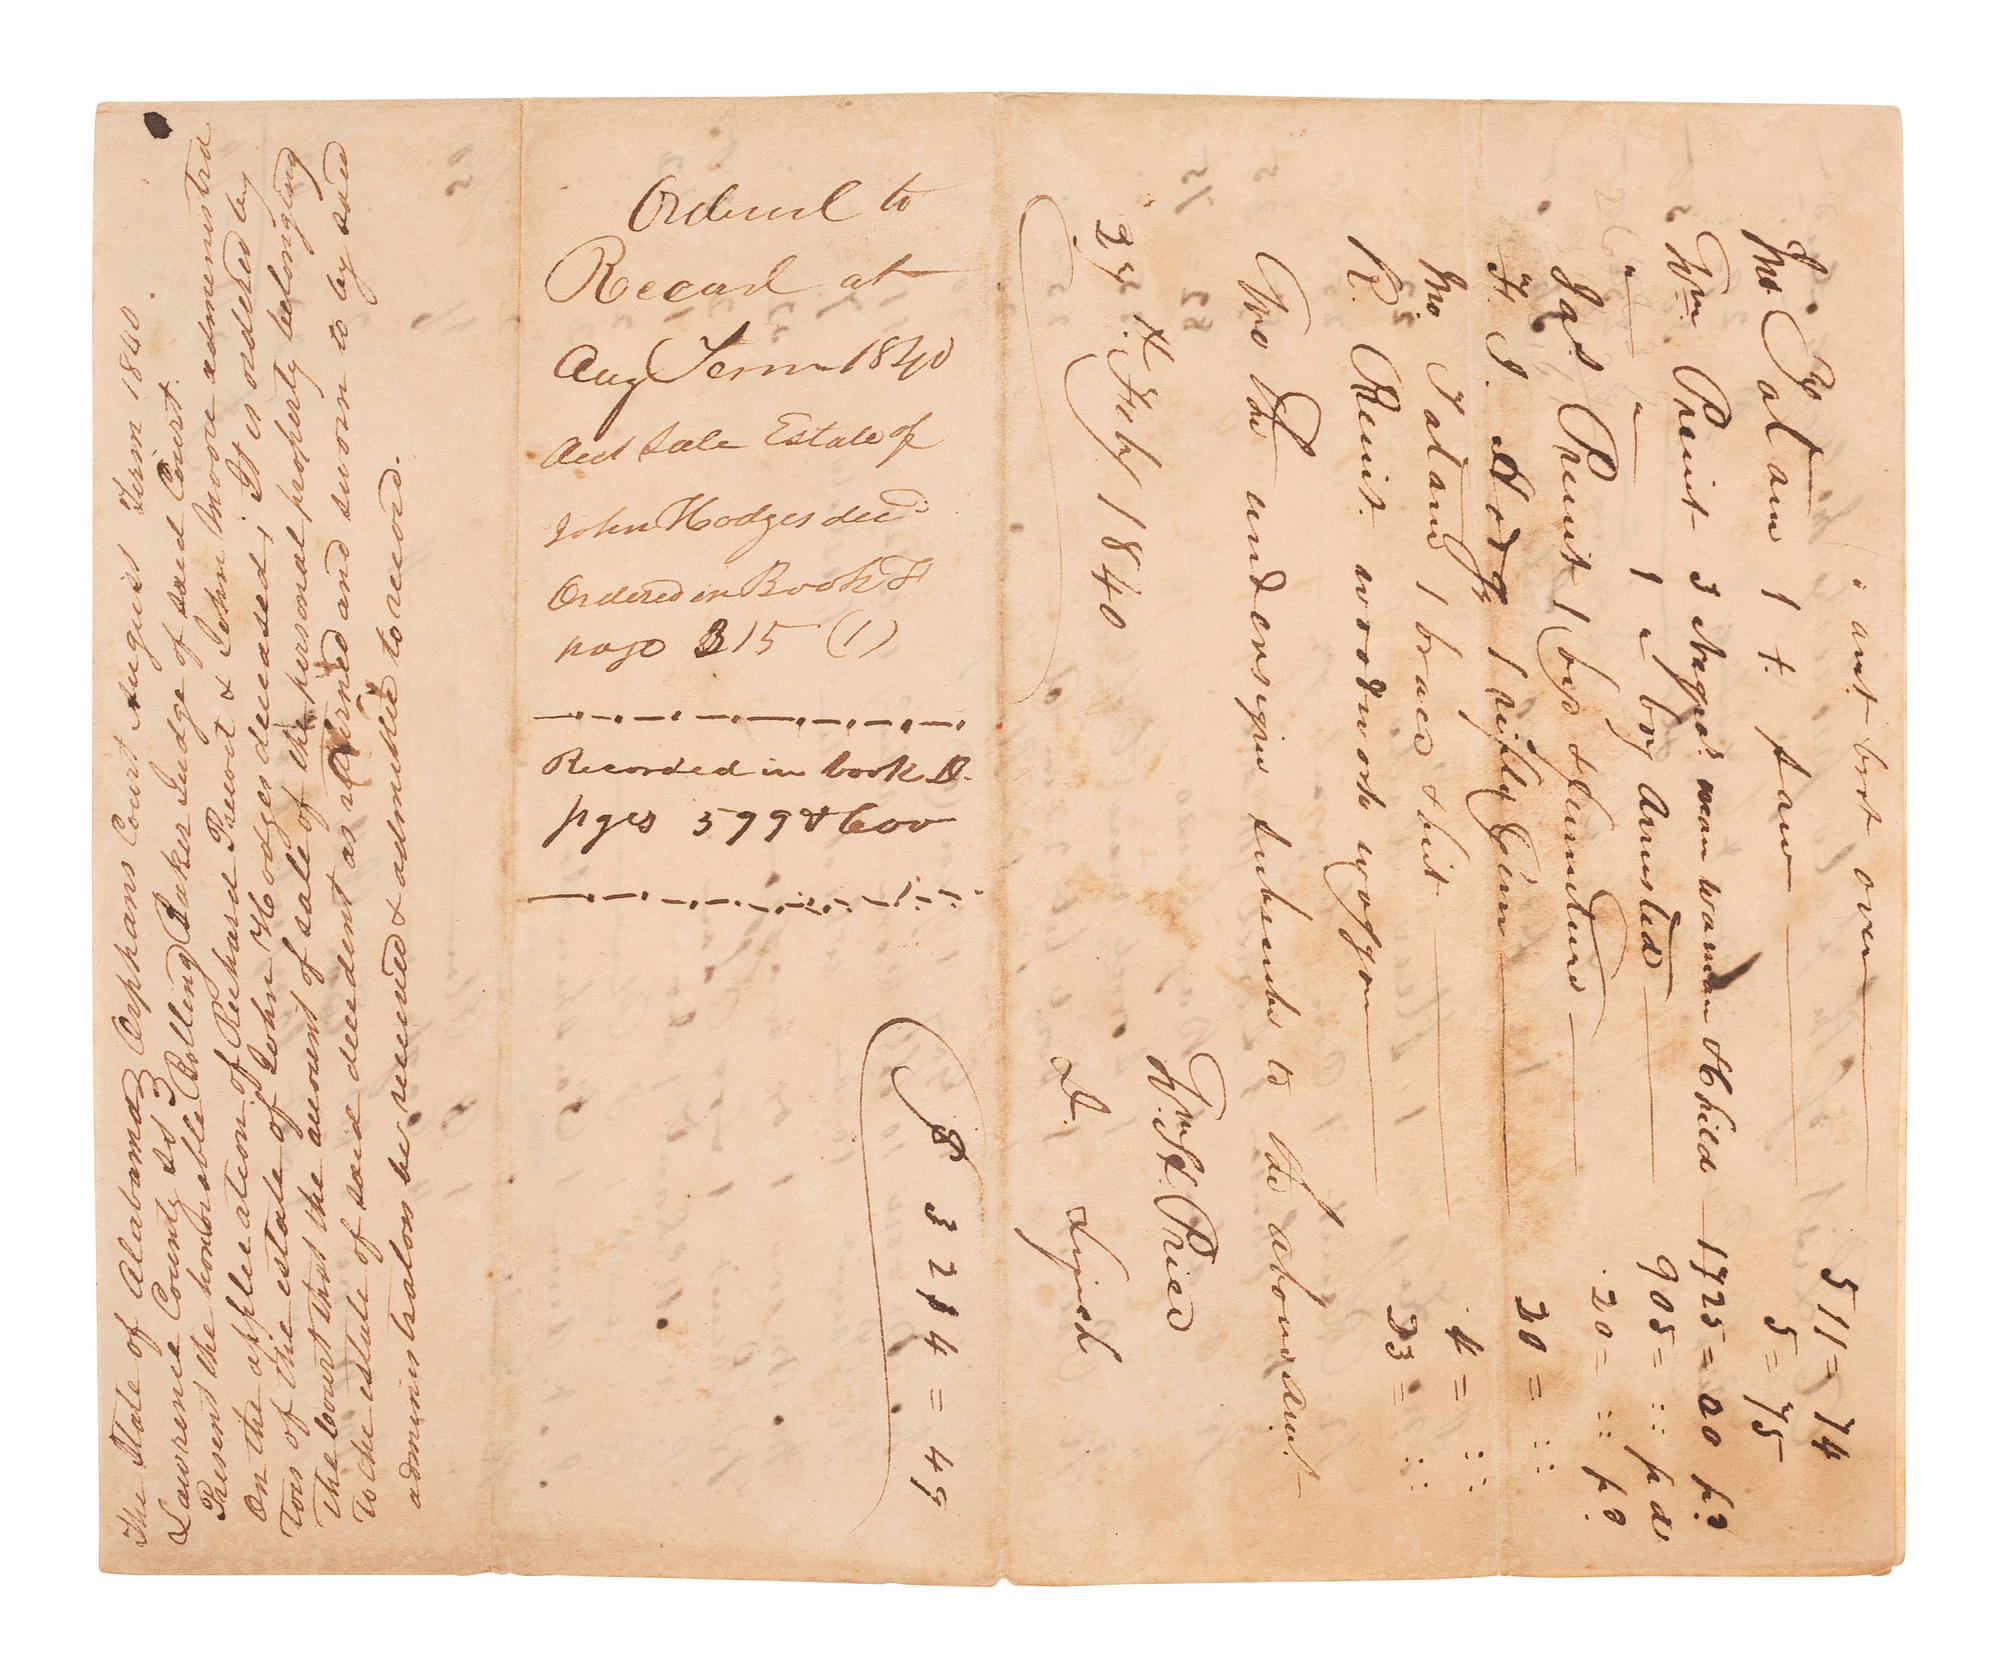 The State of Alabama } Orphans Court August Term 1840.
Lawrence County Ss } Judge of said Court.
Present the honorable Bolling Baker
On the application of Richard Prewit & John Moore administra
tors of the estate of John Hodges deceased; It is ordered by
the court that the amount of sale of the personal property belonging
to the estate of said decedent as returned and sworn to by said
administrators be received & admitted to record.
Ordered to
Record at
Aug Term 1840
Acct Sale Estate of
John Hodges decd
Ordered in Book F
page 315 (1)
Recorded in book D.
pges 599 & 600
amt brot over 511=74
1 t. saw 5=75
Wm Preuit 3 Negros man woman & Child 1725=00 pd
" " 1 " boy Armsted 905= pd
Jas Preuit 1 bed & furniture 20= pd
F. S. Hodge 1 rifle Gun 20=
1 brace & bit 4=
R. Preuit woodwork waggon 23=
We the undersigned subscribe to the above amt.
Wm H. Price
24 Feby 1840
$3214=49